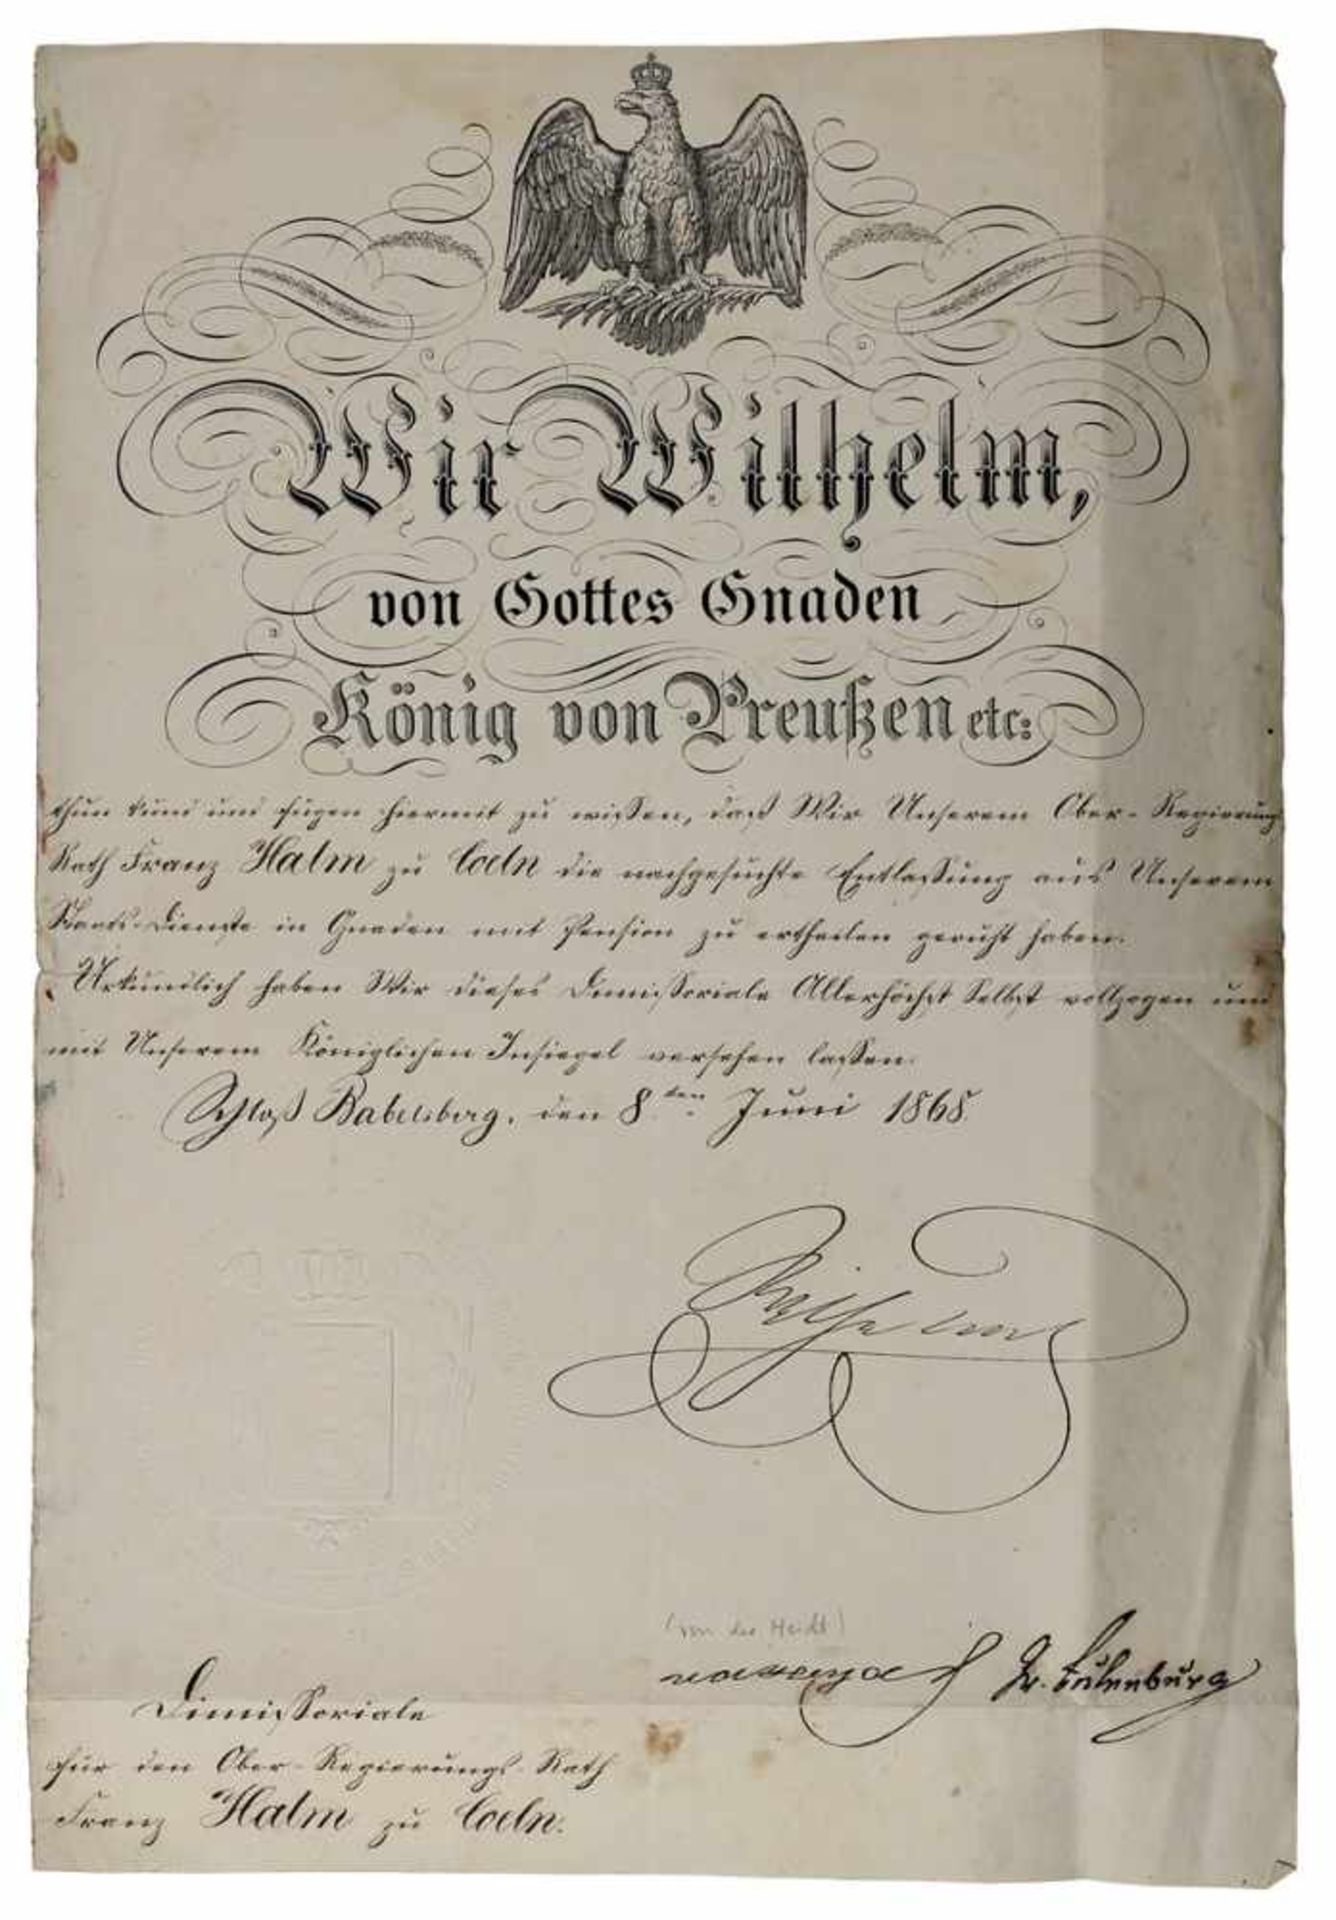 Wir Wilhelm,
von Gottes Gnaden
König von Preußen etc:
thun kund und fügen hiermit zu wissen, daß Wir Unserem Ober-Regierungs
Rath Franz Halm zu Coeln die nachgesuchte Entlassung aus Unserem
Staats-Dienste in Gnaden mit Pension zu ertheilen geruht haben.
Urkundlich haben Wir dieses Dimissoriale Allerhöchst Selbst vollzogen und
mit Unserem Königlichen Insiegel versehen lassen.
Schloß Babelsberg, den 8ten Juni 1868.
Wilhelm
(von der Heidt)
Gr. Eulenburg
Dimissoriale
für den Ober-Regierungs-Rath
Franz Halm zu Coeln.